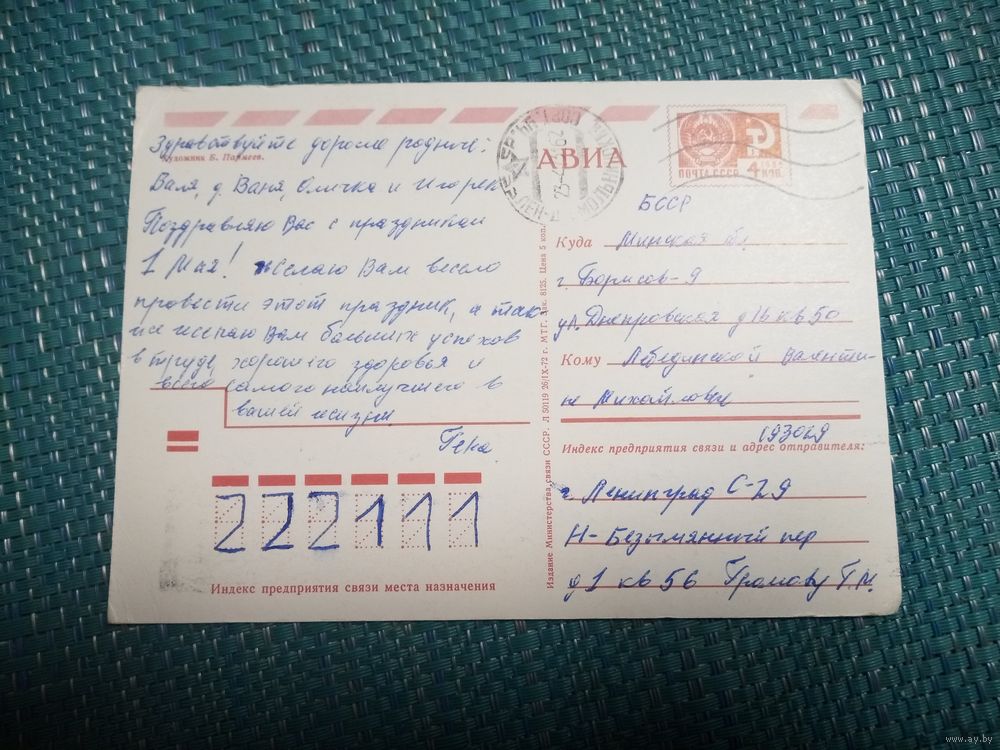 Здравствуйте дорогие родные:
Художник Б. Пармеев.
Валя, д. Ваня, Оличка и Игорек
Поздравляю Вас с праздником
1 Мая! желаю Вам весело
провести этот праздник, а так
же желаю Вам больших успехов
в труде, хорошего здоровья и
всего самого наилучшего в
вашей жизни
Гена.
222111
Индекс предприятия связи места назначения
Издание Министерства связи СССР. Л 50119 26/IX-72 г. МТГ. Зак. 8125. Цена 5 коп.
АВИА
ПОЧТА СССР 4 КОП.
БССР
Куда Минская обл.
г. Борисов-9
ул. Днепровская д 1б кв 50
Кому Лебединской Валенти-
не Михайловне
193029
Индекс предприятия связи и адрес отправителя:
г Ленинград С-29
Н-Безымянный пер
д 1 кв 56 Громову Г.М.
www.ay.by